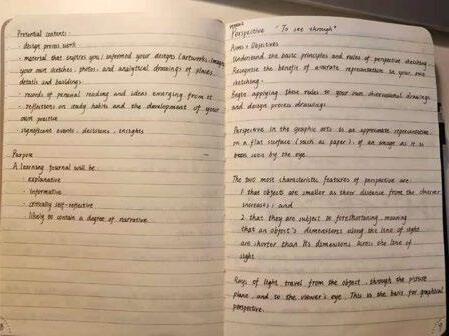 Potential contents:
- design process work
- material that inspires you / informed your designs (artworks, images
your own sketches, photos, and analytical drawings of places,
details and buildings
- records of personal reading and ideas emerging from it
- reflections on study habits and the development of your
own practice
significant events, decisions, insights
Purpose
A learning journal will be:
- explanative
- informative
- critically self-reflective
likely to contain a degree of narrative.
Perspective "To see through"
Aims + Objectives
Understand the basic principles and rules of perspective sketching
Recognise the benefit of accurate representation in your own
sketching.
Begin applying these rules to your own observational drawings
and design process drawings
Perspective in the graphic arts is an approximate representation,
on a flat surface (such as paper), of an image as it is
seen by the eye.
The two most characteristic features of perspective are:
1 that objects are smaller as their distance from the observer
increases; and
2 that they are subject to foreshortening, meaning
that an object's dimensions along the line of sight
are shorter than its dimensions across the line of
sight
Rays of light travel from the object, through the picture
plane, and to the viewer's eye. This is the basis for graphical
perspective.